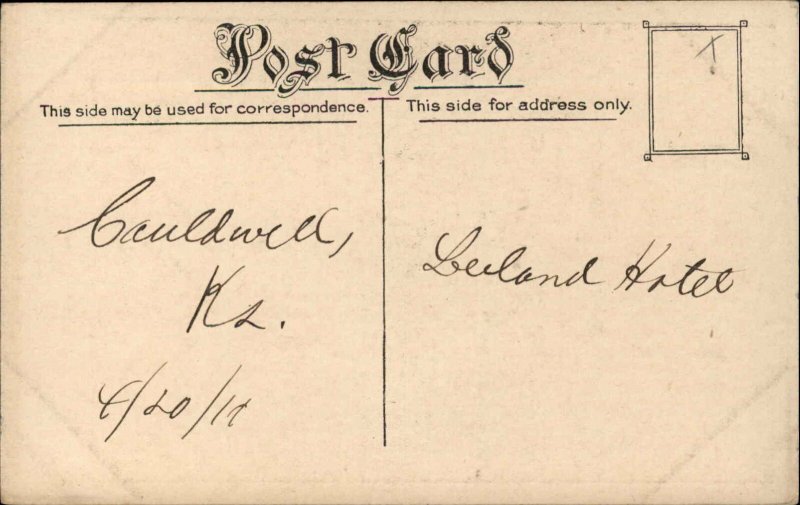 Post Card
This side may be used for correspondence.
This side for address only.
X
Cauldwell,
Ks.
4/20/11
Leeland Hotel